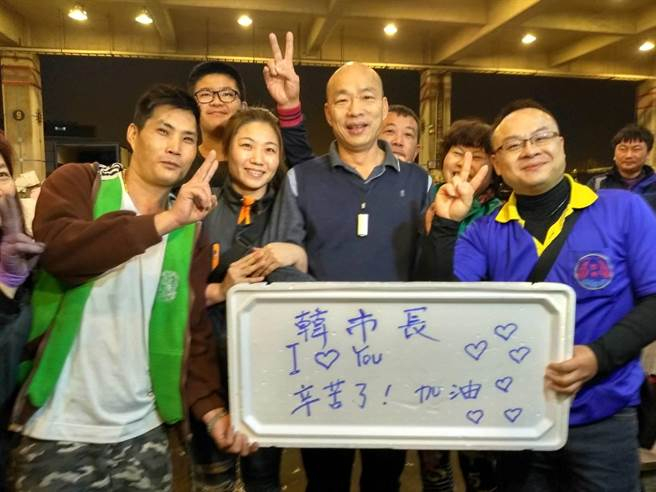 韓市長
I ♡ You
辛苦了! 加油